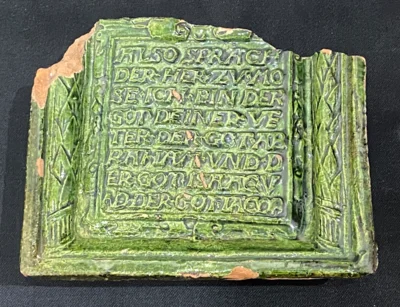 ALSO SPRACH
DER HER ZV MO
SE ICH BEIN DER
GOT DEINER VE
TER DER GOT AB
RAHAM VND D
ER GOT ISAAC V
ND DER GOT IACOB